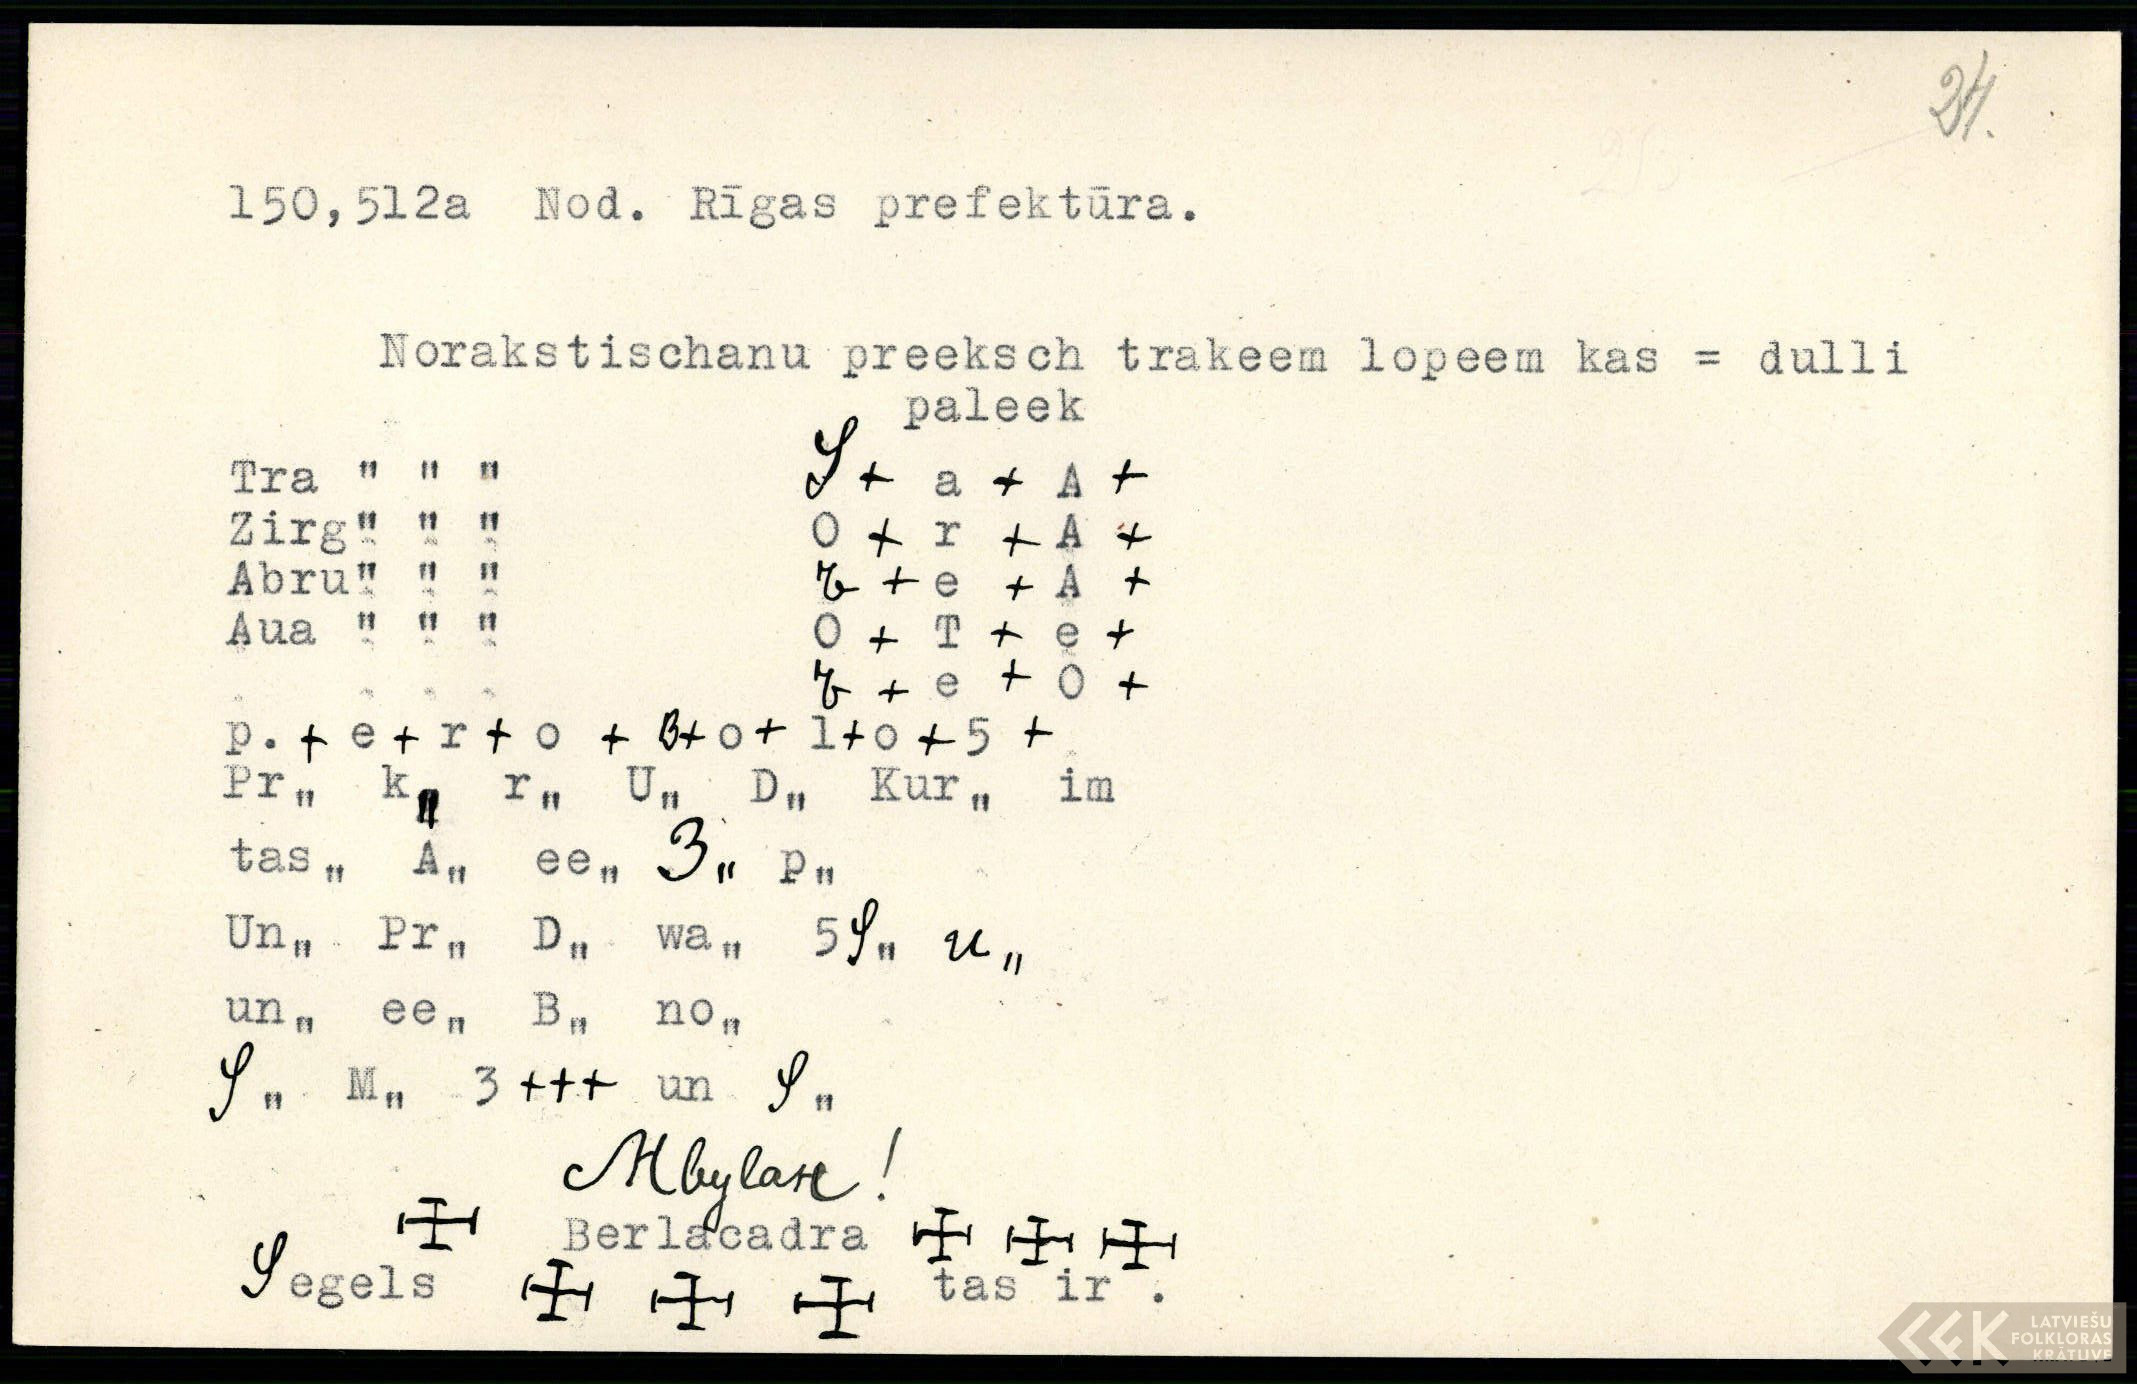 24.
150,512a Nod. Rīgas prefektūra.
Norakstischanu preeksch trakeem lopeem kas = dulli
paleek
Tra " " " S + a + A +
Zirg" " " O + r + A +
Abru" " " + e + A +
Aua " " " O + T + e +
+ e + O +
p. + e + r + o + B + o + l + o + 5 +
Pr„ k„ r„ U„ D„ Kur„ im
tas„ A„ ee„ 3„ p„
Un„ Pr„ D„ wa„ 5S„ u„
un„ ee„ B„ no„
S„ M„ 3 +++ un S„
Berlacadra
Segels tas ir .
LATVIEŠU
FOLKLORAS
KRĀTUVE